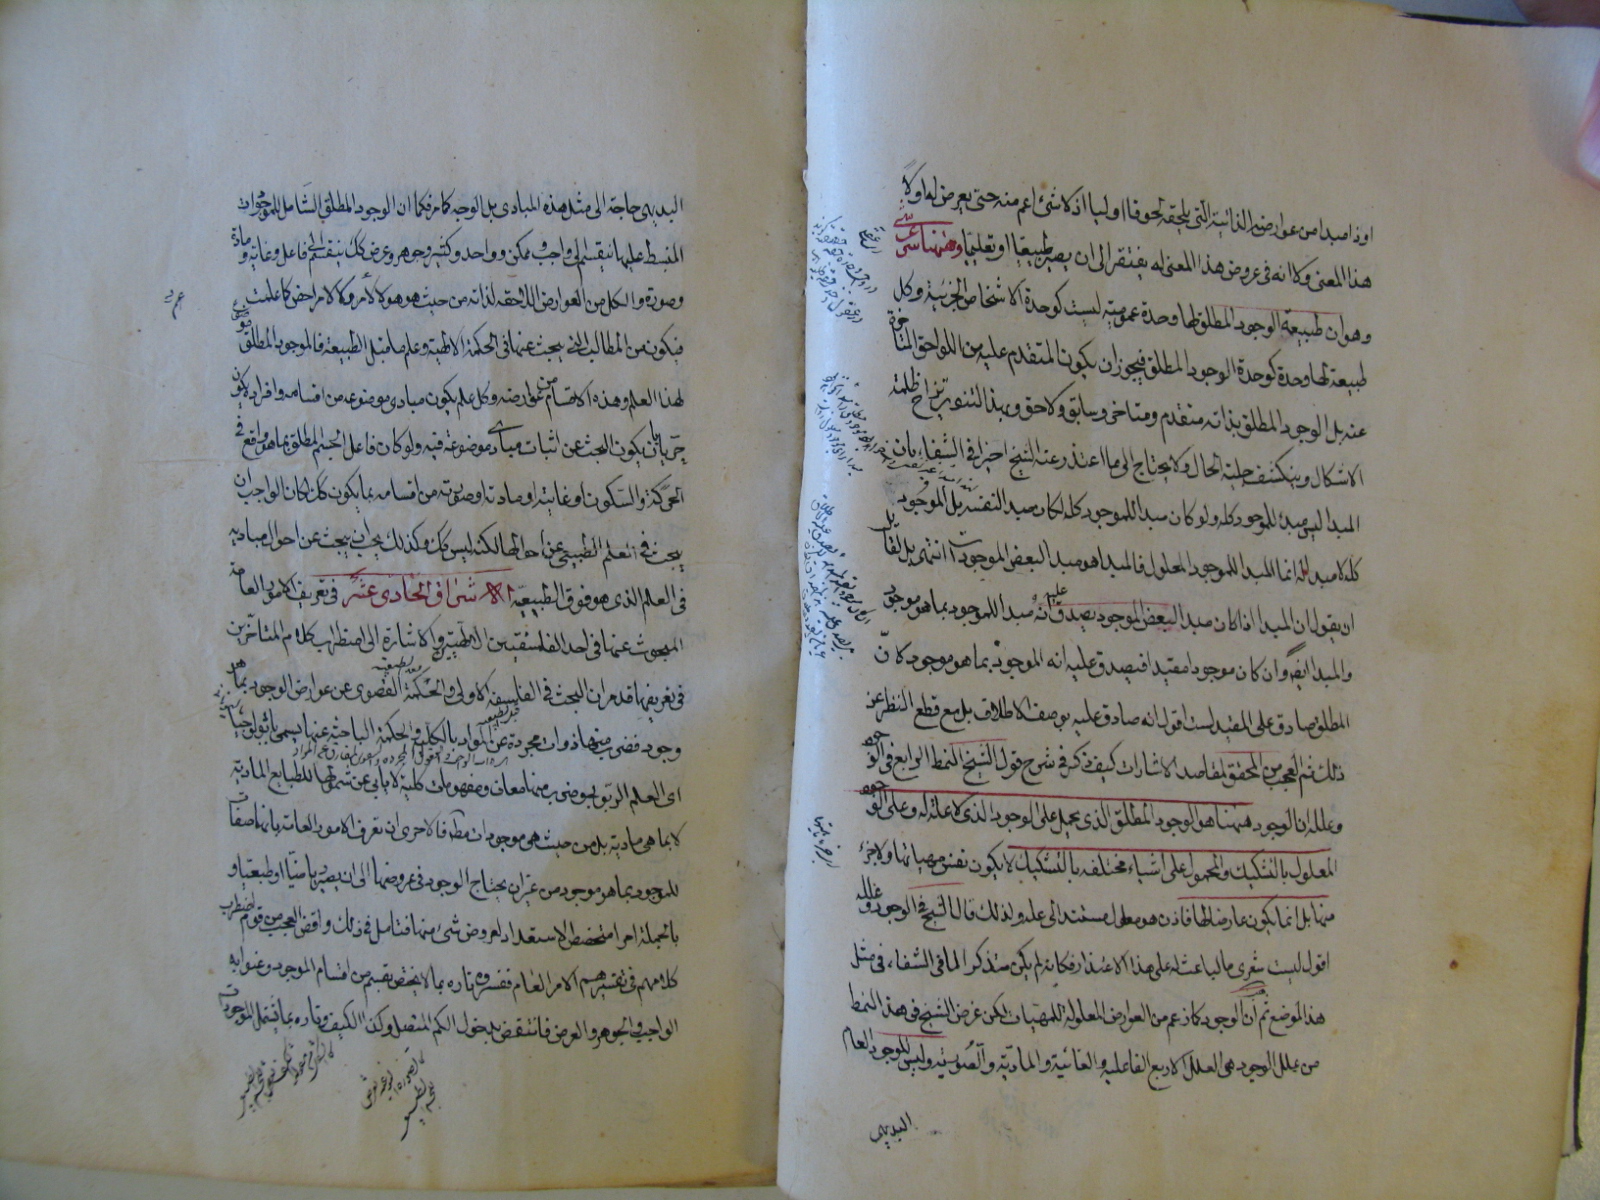 او ذا مبدا من عوارضه الذاتية التي يلحقه لحوقا اوليا اذ لا شئ اعم منه حتى يعرض له اولا
هذا المعنى ولا انه في عروض هذا المعنى له يفتقر الى ان يصير طبيعيا او تعليميا وههنا سر عرشي
وهو ان طبيعة الوجود المطلق لها وحدة عمومية ليست كوحدة الاشخاص الجزئية وكل
طبيعة لها وحدة كوحدة الوجود المطلق فيجوز ان يكون المتقدم عليه من اللواحق المتاخرة
عنه بل الوجود المطلق بذاته متقدم ومتاخر وسابق ولاحق وبهذا التنوير تزاح ظلمة
الاشكال وينكشف جلية الحال ولا يحتاج الى ما اعتذر عنه الشيخ اخيرا في الشفاء بان
المبدا ليس مبدا للموجود كله ولو كان مبدا للموجود كله لكان مبدا لنفسه بل الموجود
كله لا مبدا له انما المبدا للموجود المعلول فالمبدا هو مبدا لبعض الموجودات انتهى بل لقائل
ان يقول ان المبدا اذا كان مبدا لبعض الموجود يصدق عليه انه مبدا للموجود بما هو موجود
والمبدا ايضا وان كان موجودا مقيدا فيصدق عليه انه الموجود بما هو موجود لان
المطلق صادق على المقيد لست اقول انه صادق عليه بوصف الاطلاق بل مع قطع النظر عن
ذلك ثم العجب من المحقق لمقاصد الاشارات كيف ذكر في شرح قول الشيخ النمط الرابع في الوجود
وعلله ان الوجود ههنا هو الوجود المطلق الذي يحمل على الوجود الذي لا علة له وعلى الوجود
المعلول بالتشكيك والمحمول على اشياء مختلفة بالتشكيك لا يكون نفس مهياتها ولا جزء
منها بل انما يكون عارضا لها فاذن هو معلول مستند الى علة ولذلك قال الشيخ في الوجود وعلله
اقول ليت شعري ما الباعث له على هذا الاعتذار فكانه لم يكن متذكرا لما في الشفاء في مثل
هذا الموضع ثم ان الوجود كما زعم من العوارض المعلولة للمهيات لكن غرض الشيخ في هذا النمط
من علل الوجود هي العلل الاربع الفاعلية والغائية والمادية والصورية وليس للوجود العام
البديهي
البديهي حاجة الى مثل هذه المبادي بل الوجه كما مر فكما ان الوجود المطلق الشامل للموجودات
المنبسط عليها ينقسم الى واجب وممكن وواحد وكثير وجوهر وعرض كذلك ينقسم الى فاعل وغاية ومادة
وصورة والكل من العوارض اللاحقة لذاته من حيث هو هو لا لامر ولا لامر اخص كما علمت
فيكون من المطالب التي يبحث عنها في الحكمة الالهية وعلم ما قبل الطبيعة فالموجود المطلق موضوع
لهذا العلم وهذه الاقسام من عوارضه وكل علم يكون مبادي موضوعه من اقسامه وافراده يكون
حريا بان يكون البحث عن اثبات مبادي موضوعه فيه ولو كان فاعل الجسم المطلق بما هو واقع في
الحركة والسكون او غايته او مادته او صورته من اقسامه بما يكون كذلك لكان الواجب ان
يبحث في العلم الطبيعي عن احوالها لكنه ليس كذلك ولذلك يجب ان يبحث عن احوال مباديه
في العلم الذي هو فوق الطبيعة الاشراق الحادي عشر في تعريف الامور العامة
المبحوث عنها في احد الفلسفتين الالهيتين والاشارة الى اضطراب كلام المتاخرين
في تعريفها قد مر ان البحث في الفلسفة الاولى والحكمة القصوى عن عوارض الوجود بما هو
وجود فضرب منها ذوات مجردة عن المواد بالكلية والحكمة الباحثة عنها يسمى باثولوجيا
اي العلم الربوبي وضرب منها معان ومفهومات كلية لا يابى عن شمولها للطبايع المادية
لا بما هي مادية بل من حيث هي موجودات مطلقا فالاحرى ان تعرف الامور العامة بانها صفات
للموجود بما هو موجود من غير ان يحتاج الوجود في عروضها الى ان يصير رياضيا او طبيعيا و
بالجملة امرا متخصص الاستعداد لعروض شئ منها فتامل في ذلك واقض العجب من قوم اضطرب
كلامهم في تفسيرهم الامر العام ففسروه تارة بما لا يختص بقسم من اقسام الموجود وعنوا به
الواجب والجوهر والعرض فانتقض بدخول الكم المتصل وكذا الكيف وتارة بما يشمل الموجودات